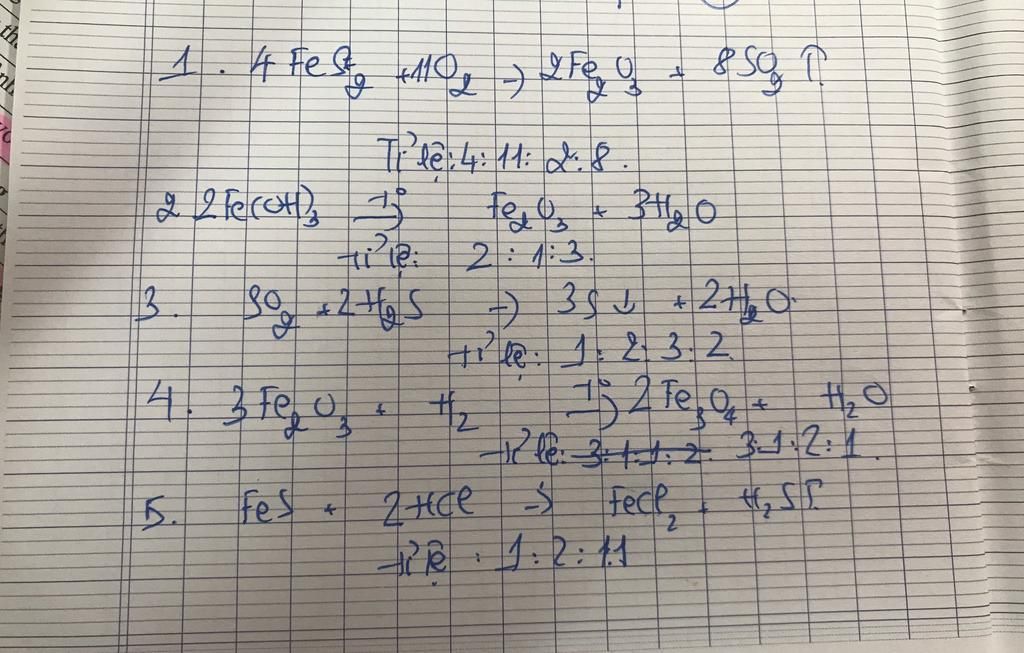 1. 4FeS₂ + 11O₂ → 2Fe₂O₃ + 8SO₂ ↑
Tỉ lệ: 4: 11: 2: 8.
2 2Fe(OH)₃ →(t°) Fe₂O₃ + 3H₂O
tỉ lệ: 2: 1: 3.
3. SO₂ + 2H₂S → 3S ↓ + 2H₂O.
tỉ lệ: 1: 2: 3: 2
4. 3Fe₂O₃ + H₂ →(t°) 2Fe₃O₄ + H₂O
tỉ lệ: 3:1:1:2. 3:1:2:1.
5. FeS + 2HCl → FeCl₂ + H₂S↑.
tỉ lệ: 1:2:11